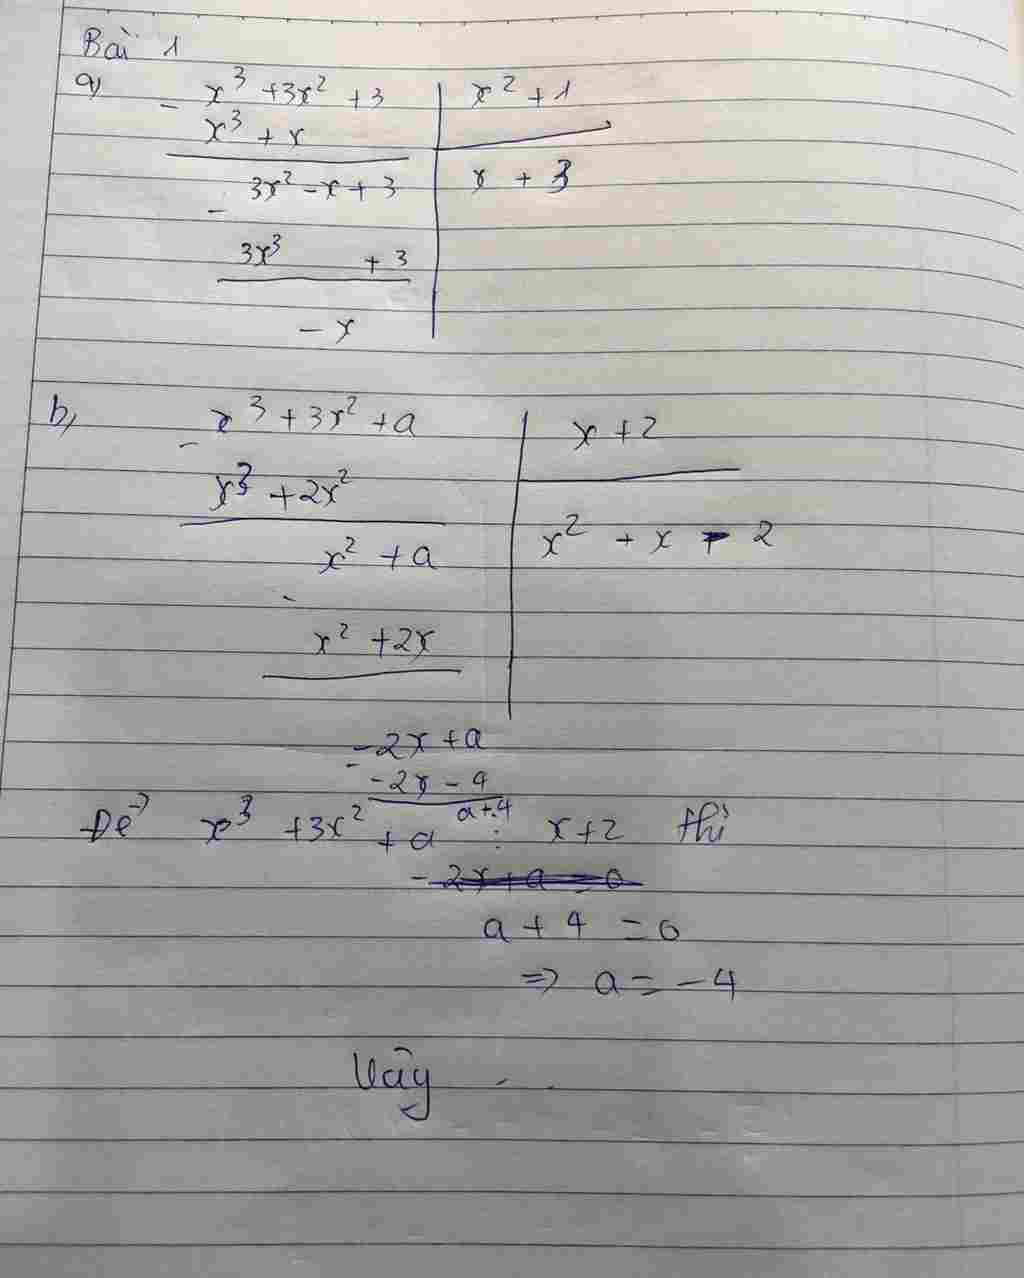 Bài 1
a) - x³ + 3x² + 3 | x² + 1
x³ + x
3x² - x + 3 | x + 3
-
3x³ + 3
- x
b, - x³ + 3x² + a | x + 2
x³ + 2x²
x² + a | x² + x - 2
-
x² + 2x
- -2x + a
-2x - 4
a + 4
Để x³ + 3x² + a ⋮ x + 2 thì
- 2x + a = 0
a + 4 = 0
=> a = -4
Vậy . .